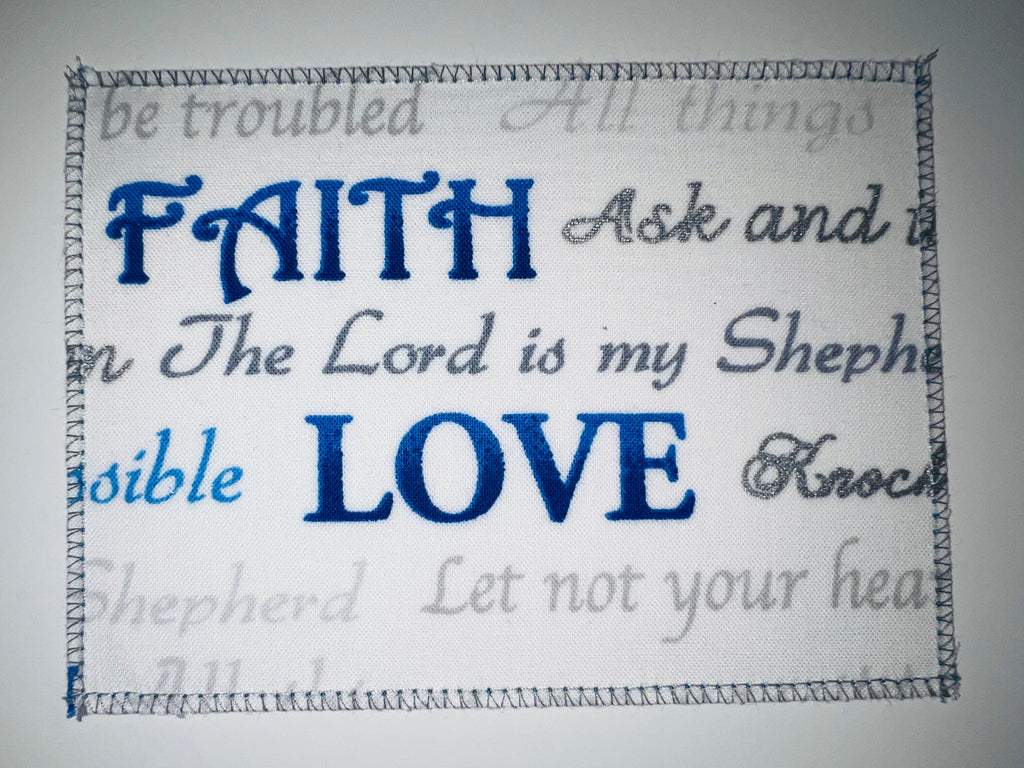 be troubled All things
FAITH Ask and
The Lord is my Sheph
sible LOVE Knoc
Shepherd Let not your hea
All